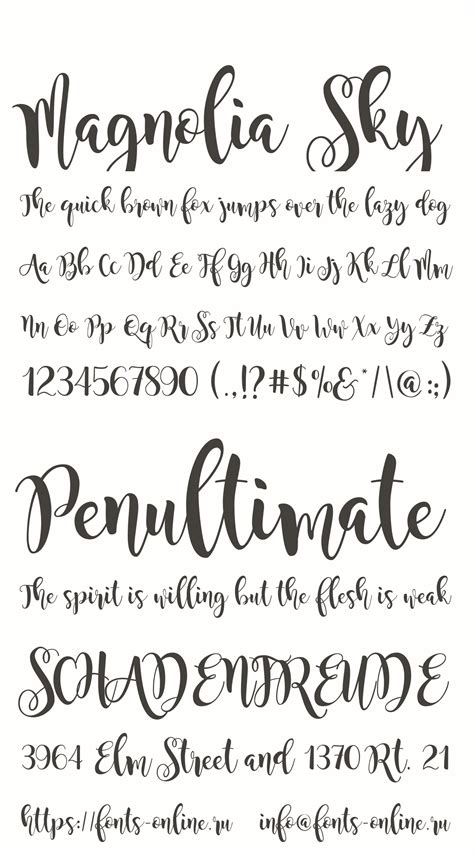 Magnolia Sky
The quick brown fox jumps over the lazy dog
Aa Bb Cc Dd Ee Ff Gg Hh Ii Jj Kk Ll Mm
Nn Oo Pp Qq Rr Ss Tt Uu Vv Ww Xx Yy Zz
1234567890 (.,!?#$%&*/|\@:;)
Penultimate
The spirit is willing but the flesh is weak
SCHADENFREUDE
3964 Elm Street and 1370 Rt. 21
https://fonts-online.ru info@fonts-online.ru